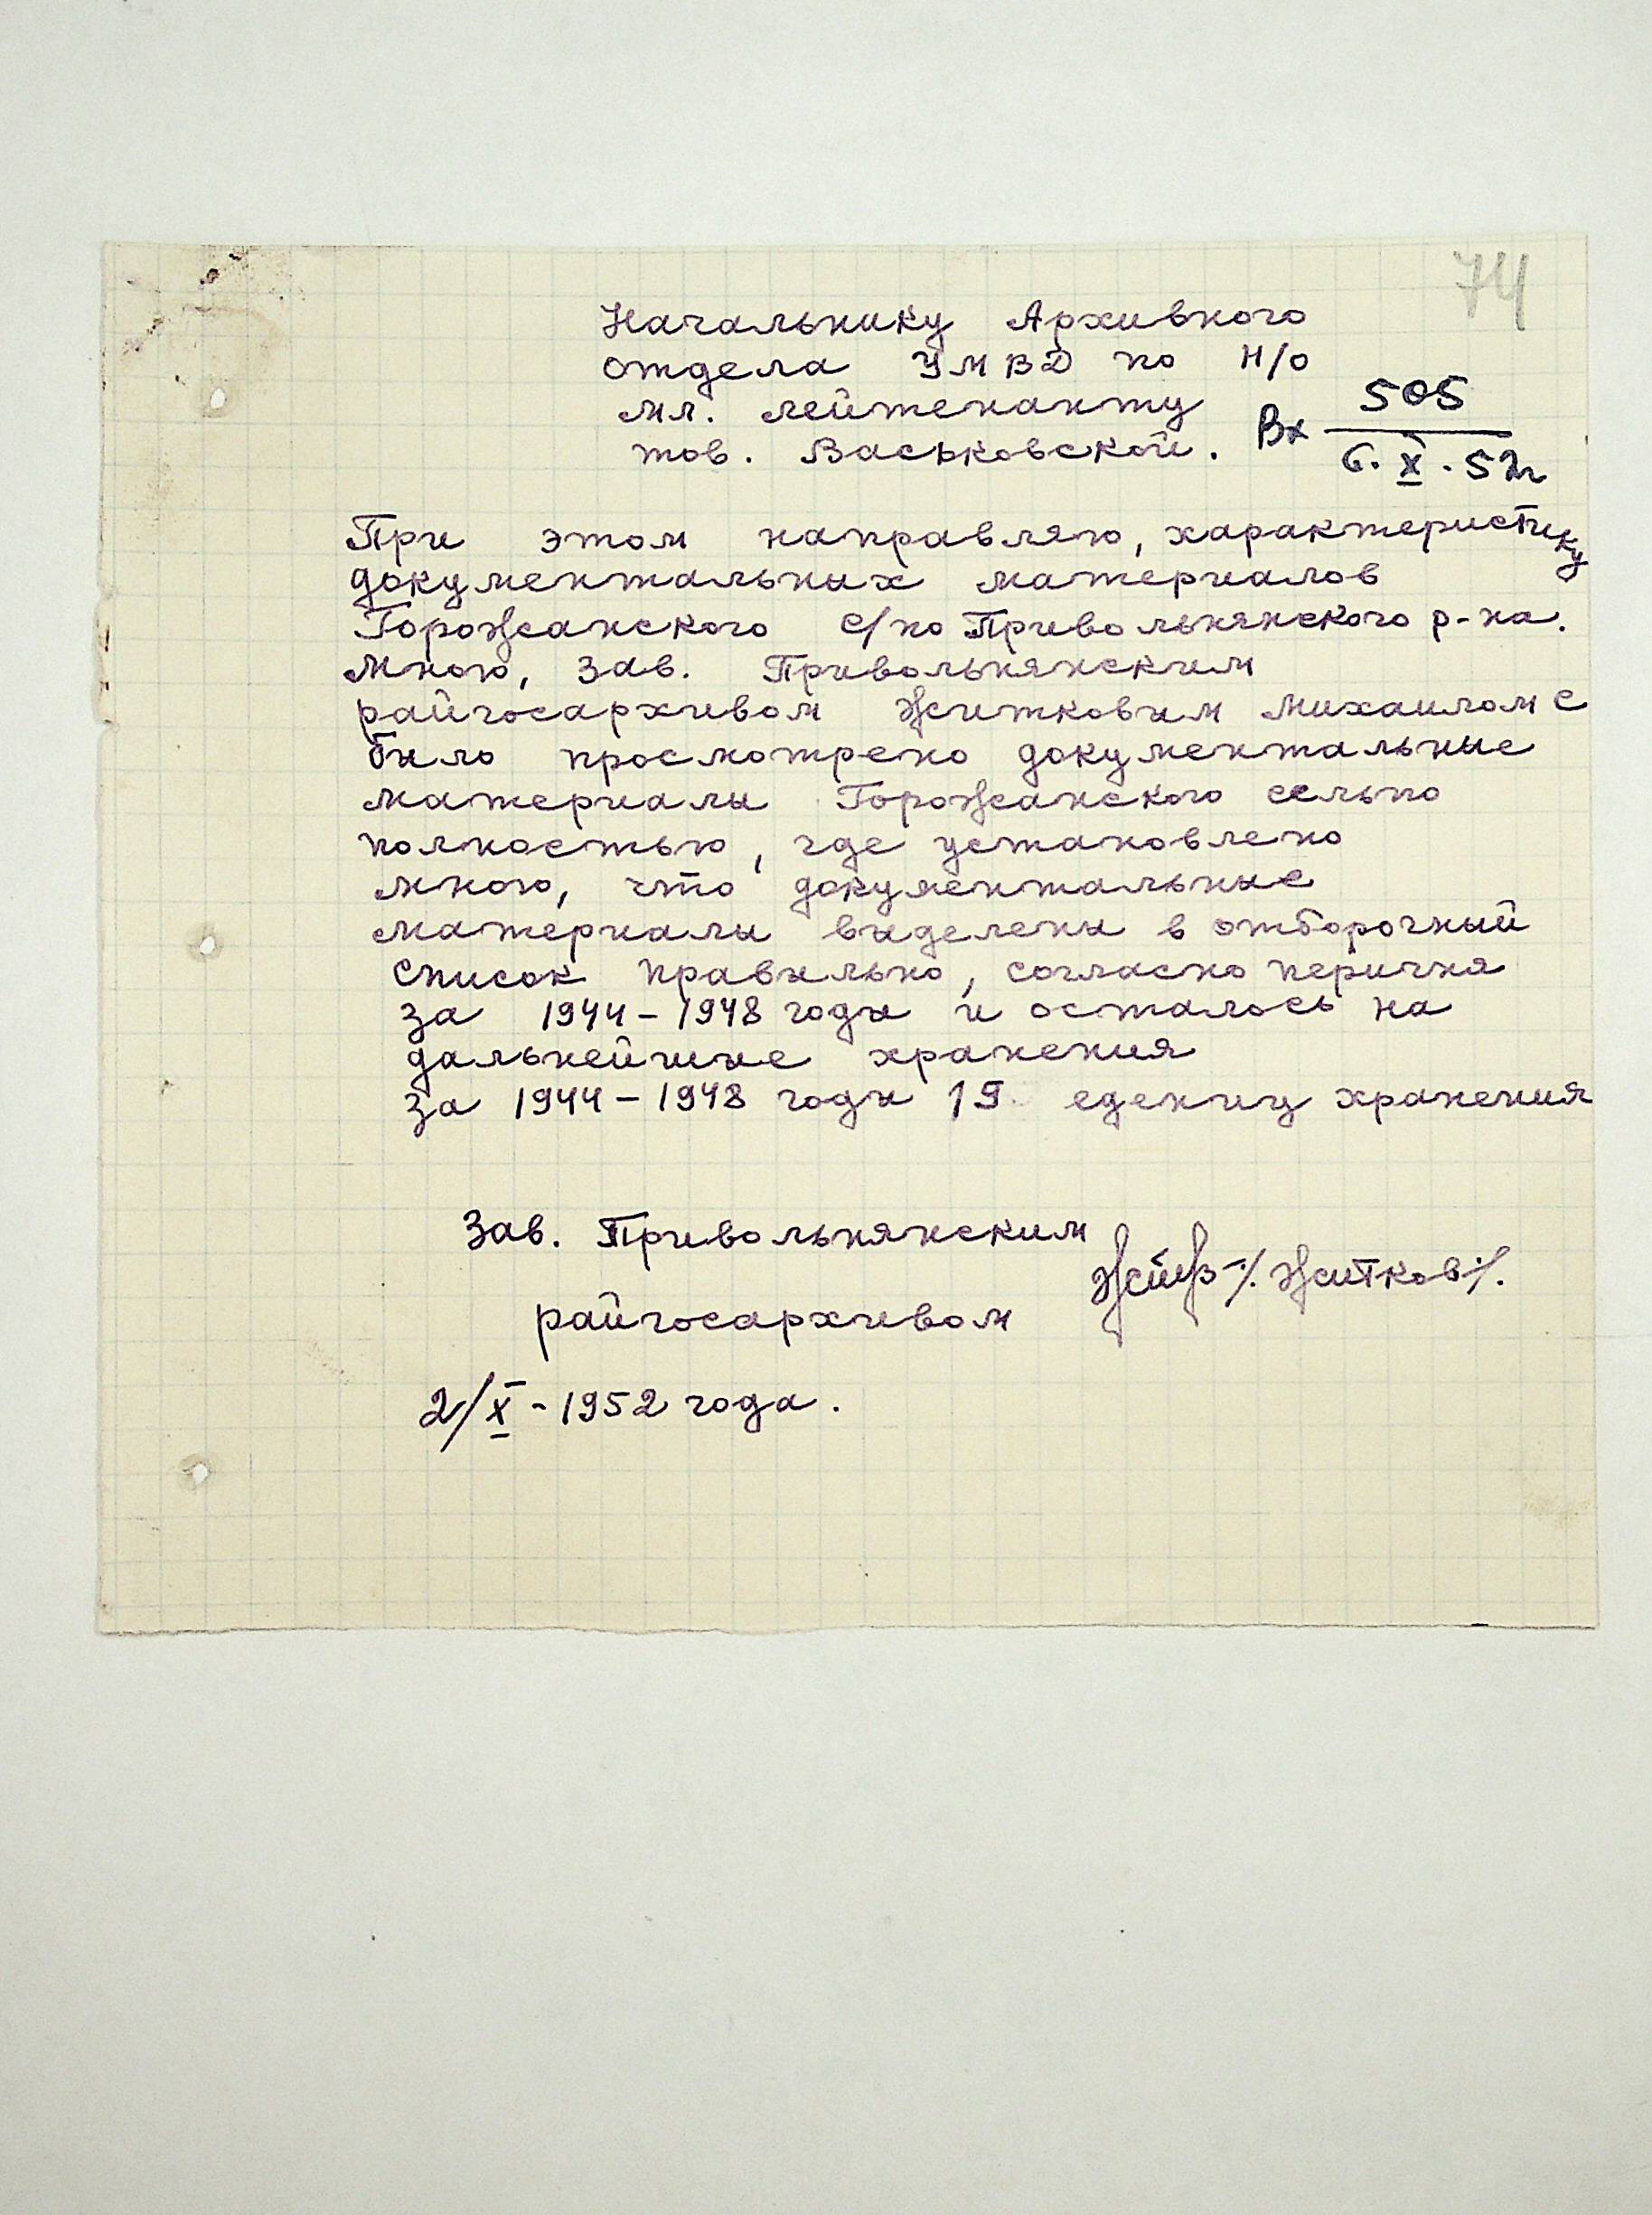 74
Начальнику Архивного
отдела УМВД по Н/О
мл. лейтенанту
тов. Васьковской.
Вх 505
6.X.52г
При этом направляю, характеристику
документальных материалов
Горожанского с/по Привольнянского р-на.
Мною, зав. Привольнянским
райгосархивом Житковым Михаилом С
было просмотрено документальные
материалы Горожанского сельпо
полностью, где установлено
мною, что документальные
материалы выделены в отборочный
список правильно, согласно перичня
за 1944-1948 годы и осталось на
дальнейшие хранения
за 1944-1948 годы 19 едениц хранения
Зав. Привольнянским
райгосархивом /.Житков/.
2/X-1952 года.